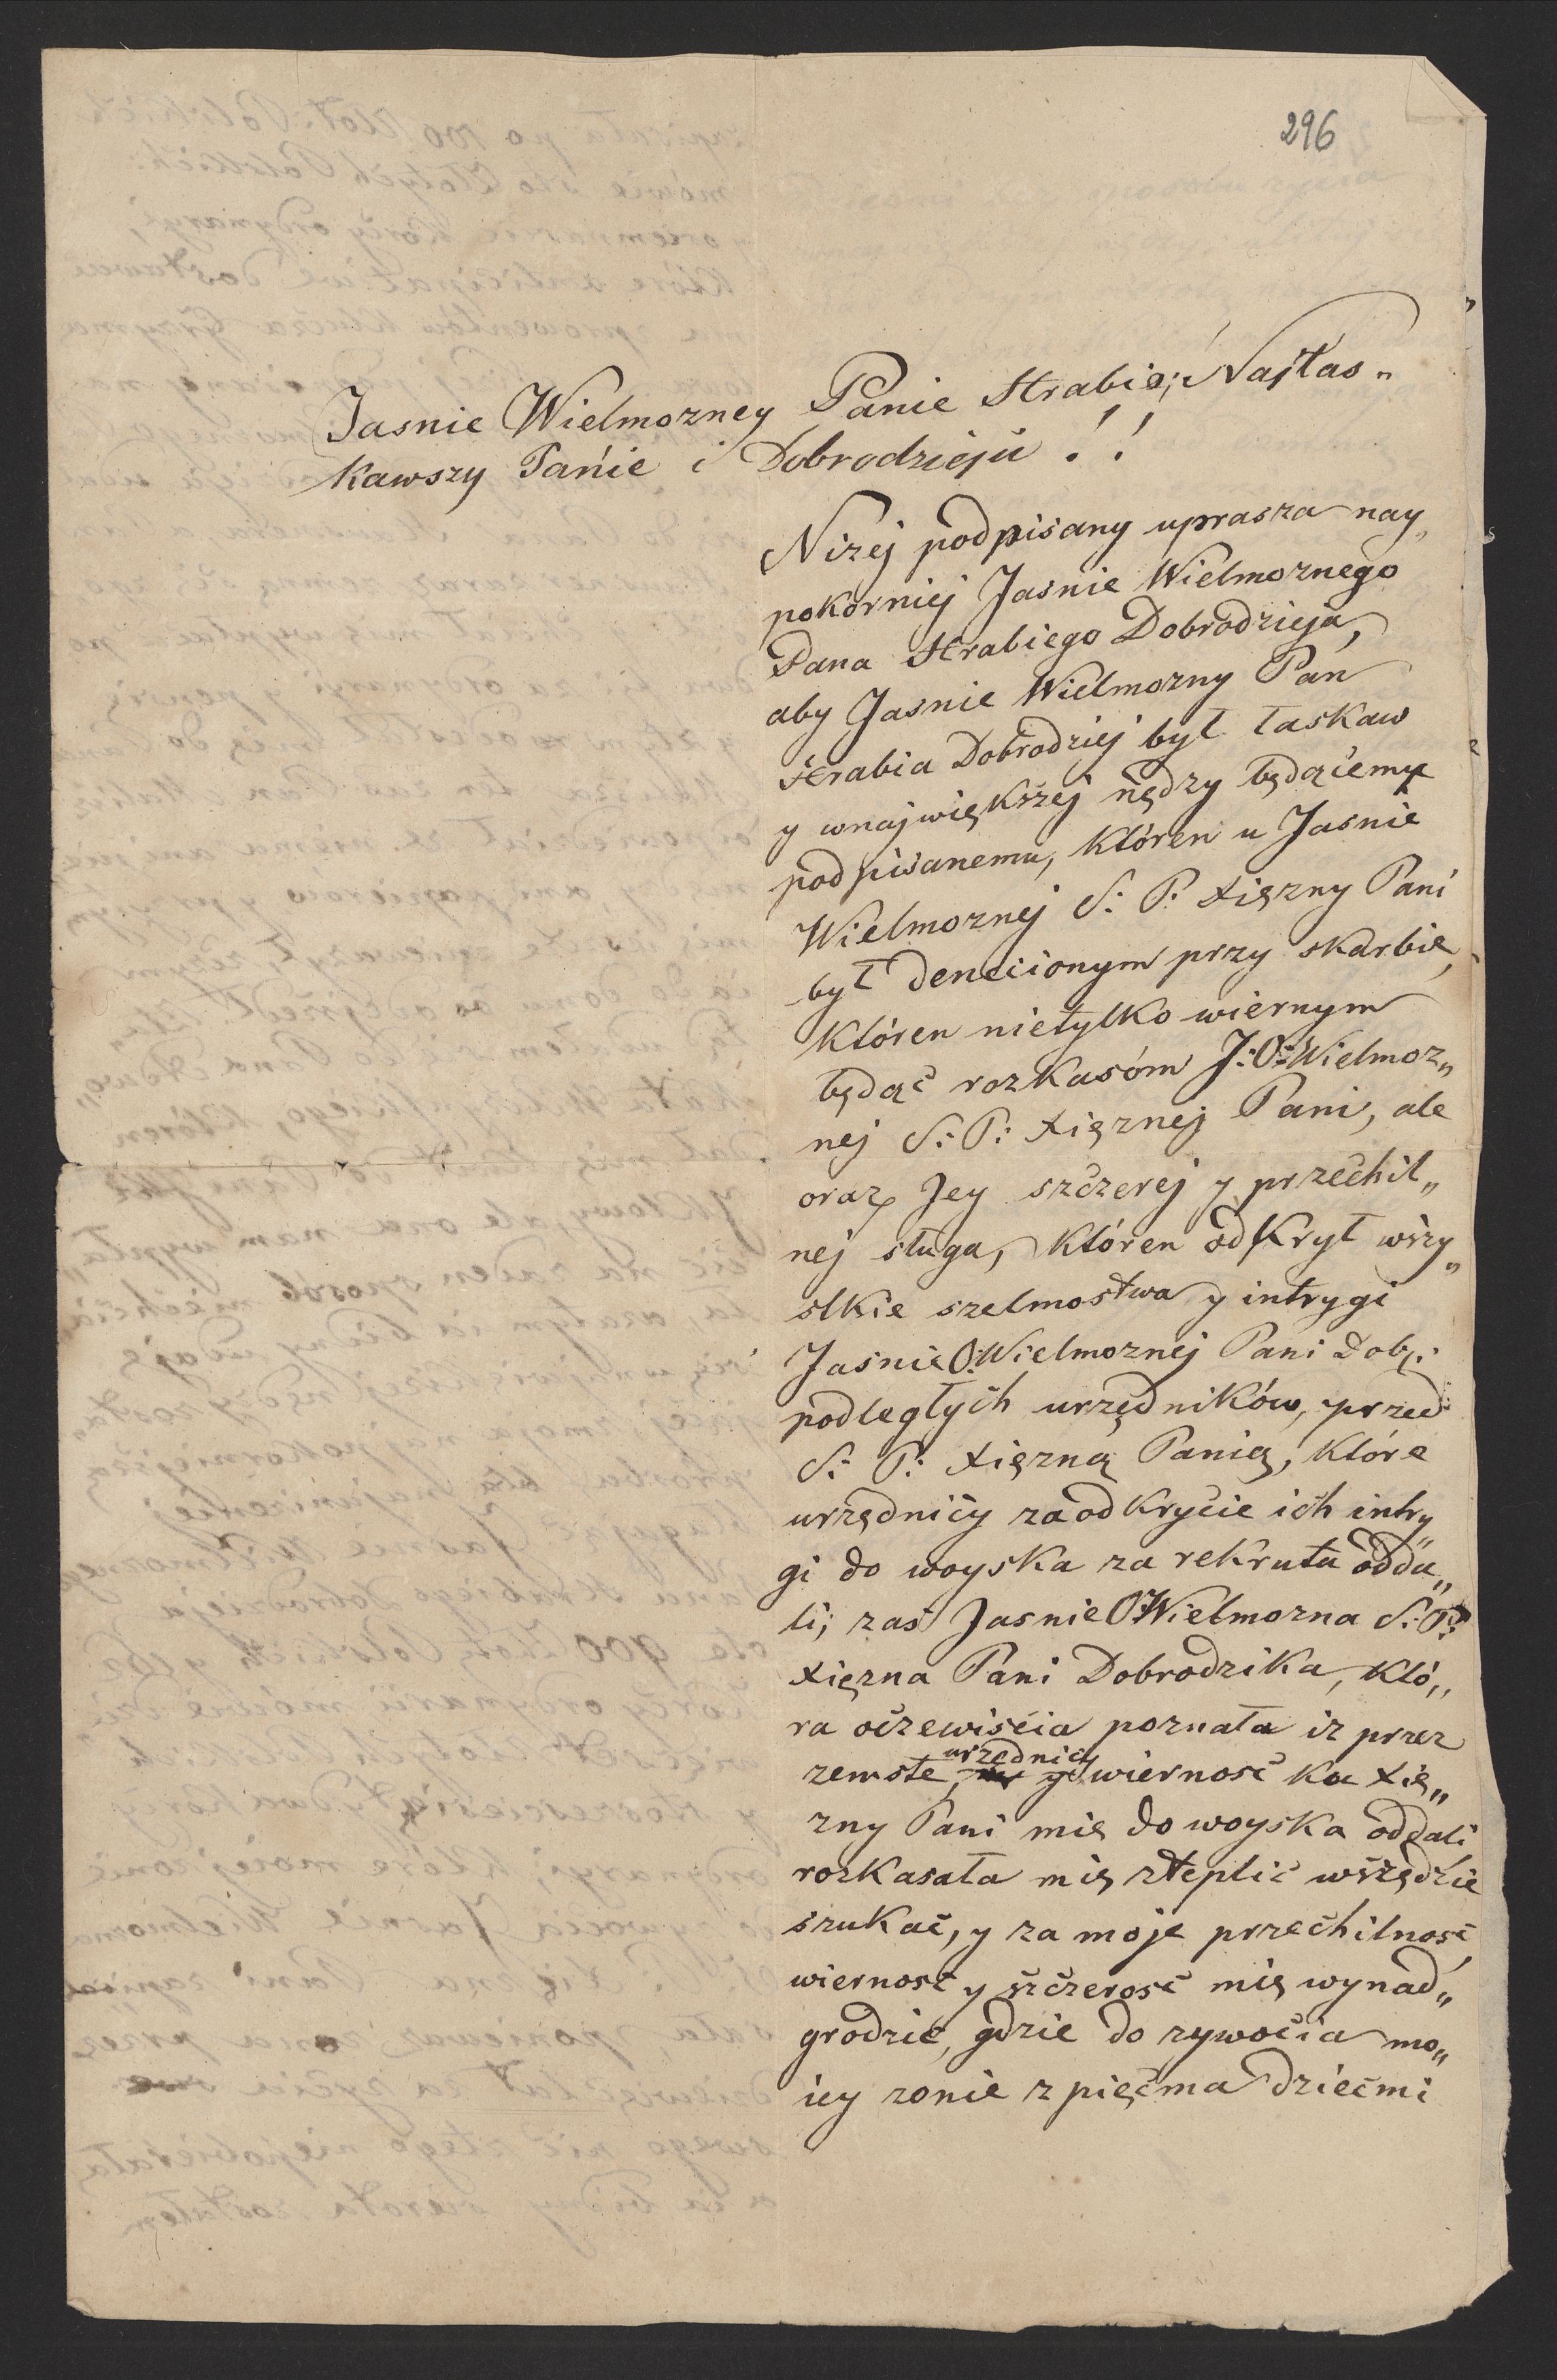 296
Jasnie Wielmozney Panie Hrabie; Najłas„
kawszy Panie i Dobrodzieju!!
Nizej podpisany uprasza nay„
pokorniej Jasnie Wielmoznego
Pana Hrabiego Dobrodzieja,
aby Jasnie Wielmozny Pan
Hrabia Dobrodziej był łaskaw
y wnajwiększej nędzy będącemu
podpisanemu, któren u Jasnie
Wielmoznej S: P: Xięzny Pani
był przy skarbie,
któren nietylko wiernym
będąc rozkasóm J: O: Wielmoz„
nej S: P: Xięznej Pani, ale
oraz Jey szczerej y przechil„
nej sługa, któren odkrył wszy„
stkie szelmostwa y intrygi
Jasnie O: Wielmoznej Pani Dob:
podległych urzędników, przed
S: P: Xięzną Panią, które
urzędnicy za odkrycie ich intry„
gi do woyska za rekruta odda„
li; zas Jasnie O: Wielmozna S: P:
Xięzna Pani Dobrodzika, któ„
ra oczewiscia poznała iz przez
zemste, urzędnicy y wiernosć ku Xię„
zny Pani mię do woyska oddali
rozkasała mię wszędzie
szukać, y za moje przechilnosć,
wiernosć y szczerosć mię wynad„
grodzić, gdzie do zywocia mo„
iey zonie z pięcma dziećmi